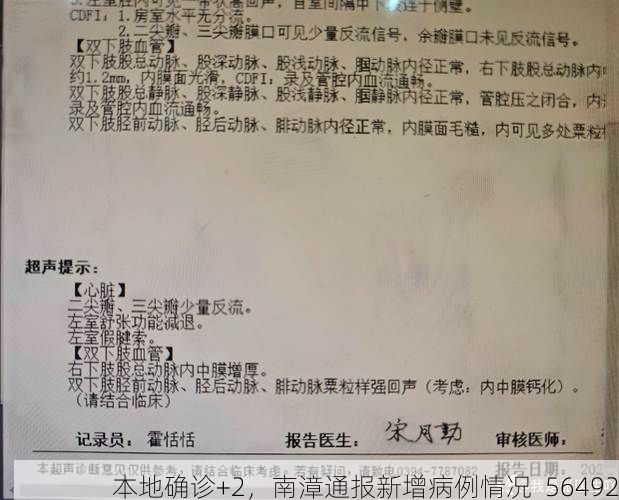 CDFI：1.房室水平无分流。
2.二尖瓣、三尖瓣膜口可见少量反流信号，余瓣膜口未见反流信号。
【双下肢血管】
双下肢股总动脉、股深动脉、股浅动脉、腘动脉内径正常，右下肢股总动脉内
约1.2mm，内膜面光滑，CDFI：录及管腔内血流通畅。
双下肢股总静脉、股深静脉、股浅静脉、腘静脉内径正常，管腔压之闭合，内
录及管腔内血流通畅。
双下肢胫前动脉、胫后动脉、腓动脉内径正常，内膜面毛糙，内可见多处粟粒
超声提示：
【心脏】
二尖瓣、三尖瓣少量反流。
左室舒张功能减退。
左室假腱索。
【双下肢血管】
右下肢股总动脉内中膜增厚。
双下肢胫前动脉、胫后动脉、腓动脉粟粒样强回声（考虑：内中膜钙化）。
（请结合临床）
记录员：霍恬恬 报告医生：宋月勤 审核医师：
本超声诊断意见仅供参考，请结合临床考虑。若有疑问，请致电0394-7787082 报告日期：202
本地确诊+2，南漳通报新增病例情况-56492